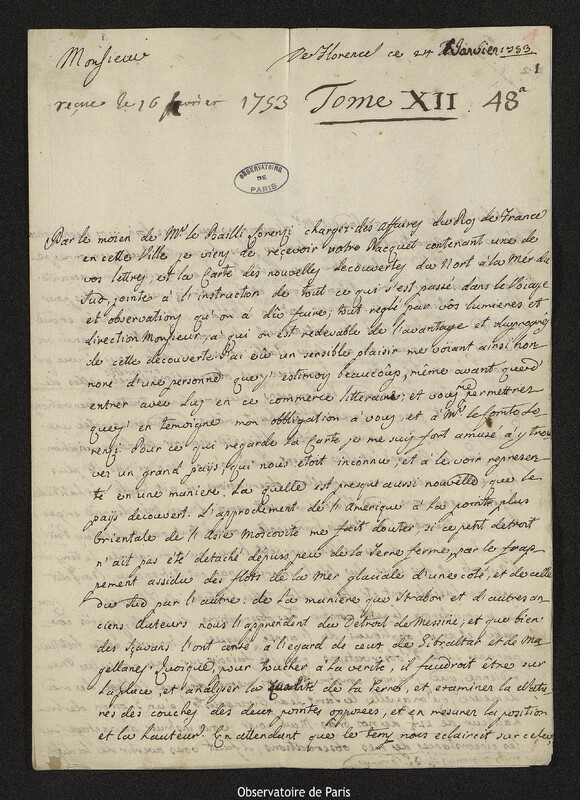 Monsieur
De Florence ce 24 Janvier 1753
1
reçue le 16 fevrier 1753 Tome XII 48a
OBSERVATOIRE
DE
PARIS
Par le moïen de Mr. le Bailli Lorenzi chargés des affaires du Roy de France
en cette Ville je viens de recevoir votre Pacquet contenant une de
vos lettres, et la Carte des nouvelles decouvertes du Nort à la Mer du
Sud, jointe à l'instruction de tout ce qui s'est passé dans le voiage
et observations qu'on a dûs faire, tout reglé par vos lumieres et
direction Monsieur, à qui on est redevable de l'avantage et du progrès
de cette decouverte. J'ai eû un sensible plaisir me voiant ainsi hon-
noré d'une personne que j'estimois beaucoup, même avant que d'
entrer avec Luy en ce commerce litteraire; et vous me permettrez
que j'en temoigne mon obligation à vous, et à Mr. le Comte Lo-
renzi. Pour ce qui regarde la Carte je me suis fort amusé à y trou-
ver un grand païs, qui nous etoit inconnu, et à le voir represen-
té en une maniere, la quelle est presque aussi nouvelle, que le
païs decouvert. L'approchement de l'Amerique à la pointe plus
Orientale de l'Asie Moscovite me fait douter, si ce petit detroit
n'ait pas été detaché depuis peu de la Terre ferme, par le frap-
pement assidu des flots de la Mer glaciale d'une coté, et de celle
du Sud par l'autre: de la maniere que Strabon et d'autres an-
ciens Auteurs nous l'apprendent du Detroit de Messine; et que bien
des sçavans l'ont crû à l'egard de ceux de Gibraltar et de Ma-
gellanes. Quoique, pour toucher à la verité, il faudroit être sur
la place, et analiser la qualité de la Terre, et examiner la Natu-
re des couches des deux pointes opposées, et en mesurer la position
et la hauteur. En attendant que le tems nous eclaircit sur cela,
Observatoire de Paris